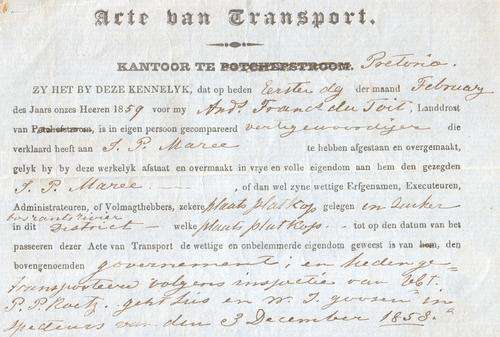 Acte van Transport.
KANTOOR TE POTCHEFSTROOM. Pretoria.
ZY HET BY DEZE KENNELYK, dat op heden Eerste dg der maand February
des Jaars onzes Heeren 1859 voor my Ands. Franc du Toit, Landdrost
van Potchefstroom, is in eigen persoon gecompareerd die
verklaard heeft aan J. P. Maree te hebben afgestaan en overgemaakt,
gelyk hy by deze werkelyk afstaat en overmaakt in vrye en volle eigendom aan hem den gezegden
J. P. Maree, of dan wel zyne wettige Erfgenamen, Executeuren,
Administrateuren, of Volmagthebbers, zekere plaats platkop gelegen in
in dit District welke plaats platkop tot op den datum van het
passeeren dezer Acte van Transport de wettige en onbelemmerde eigendom geweest is van hem, den
bovengenoemden governement; en heden ge-
transporteerd volgens inspectie van
P. P. en W. J. goosen in
speckeurs van den 3 December 1858.